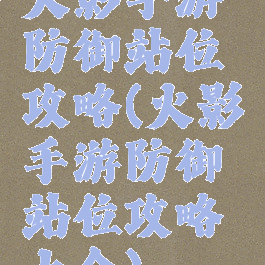 火影手游
防御站位
攻略(火影
手游防御
站位攻略
大全)